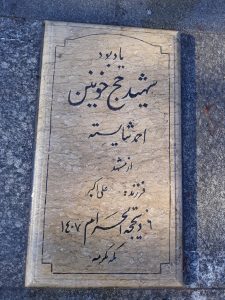 یادبود
شهید حج خونین
احمد شایسته
از مشهد
فرزند علی اکبر
۶ ذیحجه الحرام ۱۴۰۷
مکه مکرمه